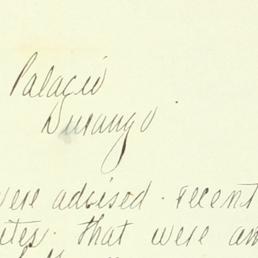 Palacio
Durango.
were advised. recent
that were an